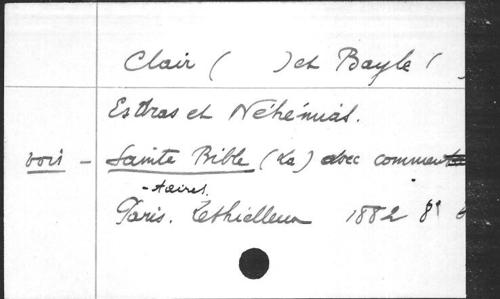 Clair (      ) et Bayle (
Esdras et Néhémias.
voir - Sainte Bible (La) avec commen
-taires.
Paris. Lethielleux 1882 8°